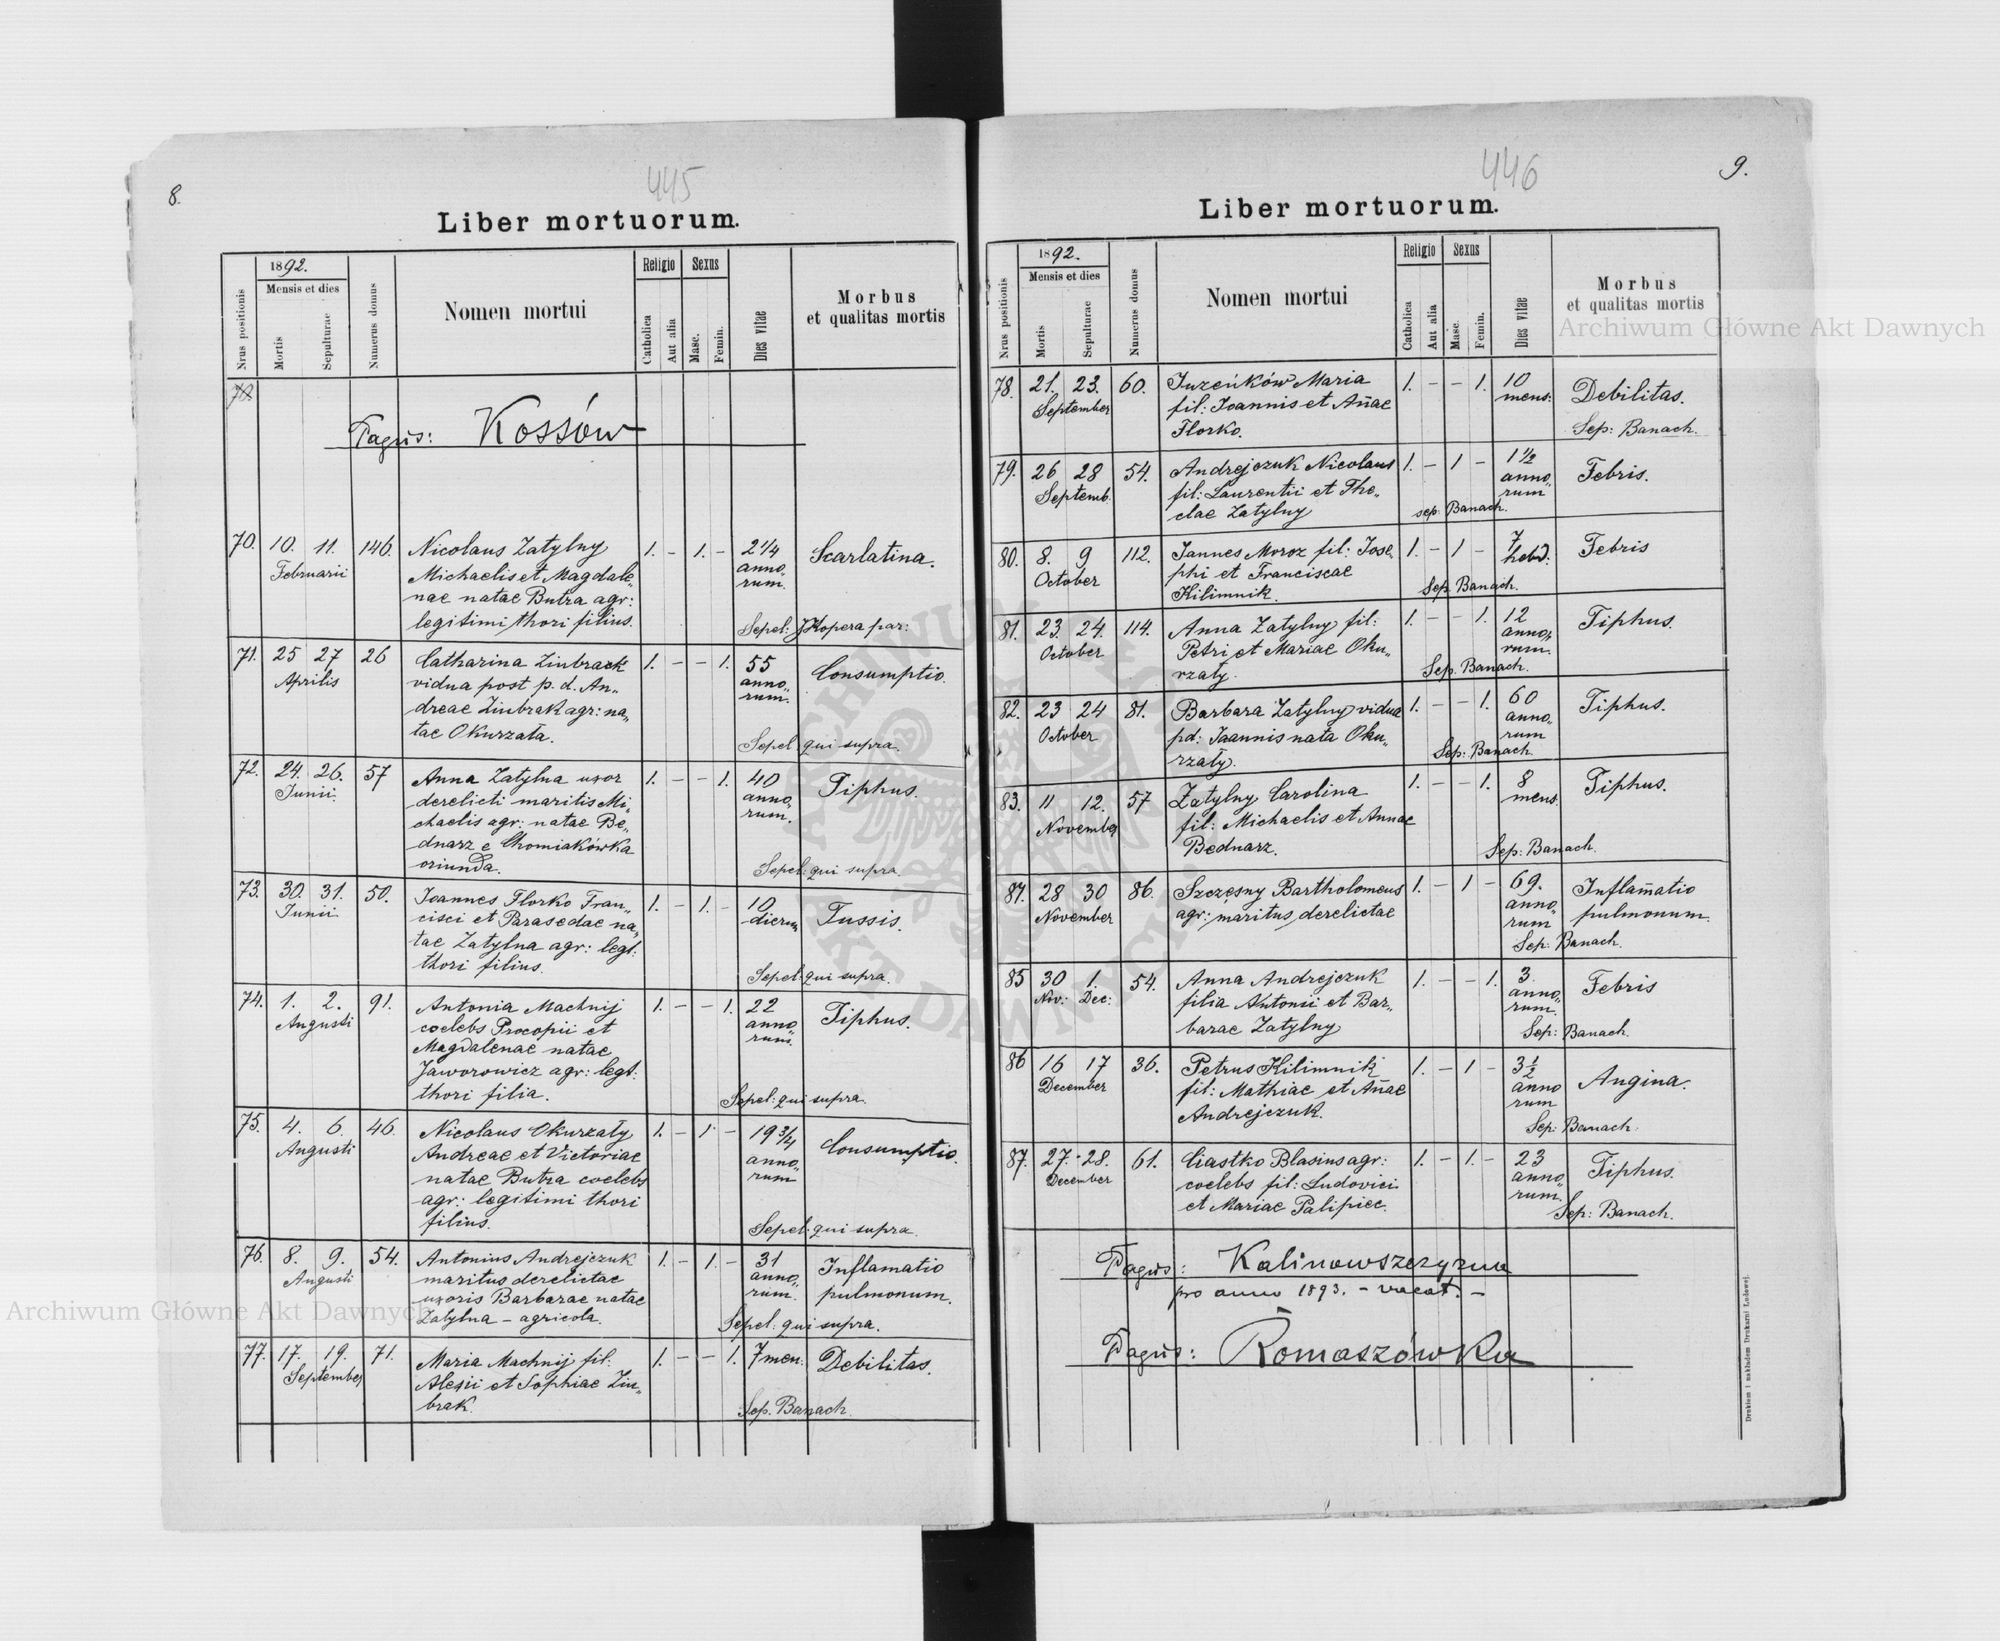 8.
445
Liber mortuorum.
Nrus positionis
1892.
Mensis et dies
Mortis
Sepulturae
Numerus domus
Nomen mortui
Religio
Catholica
Aut alia
Sexus
Masc.
Femin.
Dies vitae
Morbus
et qualitas mortis
Pagus: Kossów
70. 10. 11. 146. Nicolaus Zatylny 1. - 1. - 2 1/4 Scarlatina.
Februarii Michaelis et Magdale„ anno„
nae natae Butra agr: rum.
legitimi thori filius. Sepel: JKopera par:
71. 25 27 26 Catharina Zinbraek 1. - - 1. 55 Consumptio.
Aprilis vidua post p. d. An„ anno„
dreae Zinbrak agr: na„ rum.
tae Okurzała. Sepel: qui supra.
72. 24. 26. 57 Anna Zatylna uxor 1. - - 1. 40 Tiphus.
Junii. derelicti maritis Mi„ anno„
chaelis agr: natae Be„ rum.
dnarz e Chomiakówka
oriunda. Sepel: qui supra.
73. 30. 31. 50. Joannes Florko Fran„ 1. - 1. - 10 Tussis.
Junii cisci et Parascdae na„ dierum
tae Zatylna agr: legt:
thori filius. Sepel: qui supra.
74. 1. 2. 91. Antonia Machnij 1. - - 1. 22 Tiphus.
Augusti coelebs Procopii et anno„
Magdalenae natae rum.
Jaworowicz agr: legt:
thori filia. Sepel: qui supra.
75. 4. 6. 46. Nicolaus Okurzały 1. - 1 - 19 3/4 Consumptio.
Augusti Andreae et Victoriae anno„
natae Butra coelebs rum
agr: legitimi thori
filius. Sepel: qui supra.
76. 8. 9. 54. Antonius Andrejczuk 1. - 1. - 31 Inflamatio
Augusti maritus derelictae anno„ pulmonum.
uxoris Barbarae natae rum.
Zatylna - agricola. Sepel: qui supra.
77. 17. 19. 71. Maria Machnij fil: 1. - - 1. 7 men: Debilitas.
September Alexii et Sophiae Zin„
brak. Sep. Banach.
9.
446
Liber mortuorum.
Nrus positionis
1892.
Mensis et dies
Mortis
Sepulturae
Numerus domus
Nomen mortui
Religio
Catholica
Aut alia
Sexus
Masc.
Femin.
Dies vitae
Morbus
et qualitas mortis
78. 21. 23. 60. Juzeńków Maria 1. - - 1. 10 Debilitas.
September fil: Joannis et Añae mens:
Florko. Sep: Banach.
79. 26 28 54. Andrejczuk Nicolaus 1. - 1 - 1 1/2 Febris.
Septemb. fil: Laurentii et The„ anno„
clae Zatylny rum
sep: Banach.
80. 8. 9 112. Jannes Moroz fil: Jose„ 1. - 1 - 7 Febris
October phi et Franciscae hebd:
Kilimnik. Sep: Banach.
81. 23. 24. 114. Anna Zatylny fil: 1. - - 1. 12 Tiphus.
October Petri et Mariae Oku„ anno„
rzały. rum.
Sep. Banach.
82. 23 24 81. Barbara Zatylny vidua 1. - - 1. 60 Tiphus.
October pd: Jaannis nata Oku„ anno„
rzały. rum
Sep: Banach.
83. 11 12. 57 Zatylny Carolina 1. - - 1. 8 Tiphus.
November fil: Michaelis et Annae mens.
Bednarz. Sep: Banach.
84. 28 30 86. Szczęsny Bartholomeus 1. - 1 - 69. Inflam̄atio
November agr: maritus derelictae anno„ pulmonum.
rum
Sep: Banach.
85 30 1. 54. Anna Andrejczuk 1. - - 1. 3 Febris
Nov: Dec: filia Antonii et Bar„ anno„
barae Zatylny rum.
Sep: Banach.
86 16 17 36. Petrus Kilimnik 1. - 1 - 3 1/2 Angina.
December fil: Mathiae et Añae anno
Andrejczuk. rum
Sep: Banach.
87. 27. - 28. 61. Ciastko Blasius agr: 1. - 1. - 23 Tiphus.
December coelebs fil: Ludovici anno„
et Mariae Palipiec. rum.
Sep: Banach.
Pagus: Kalinowszczyzna
pro anno 1893. - vacat. -
Pagus: Romaszówka
Drukiem i nakładem Drukarni Ludowej.
Archiwum Główne Akt Dawnych
Archiwum Główne Akt Dawnych